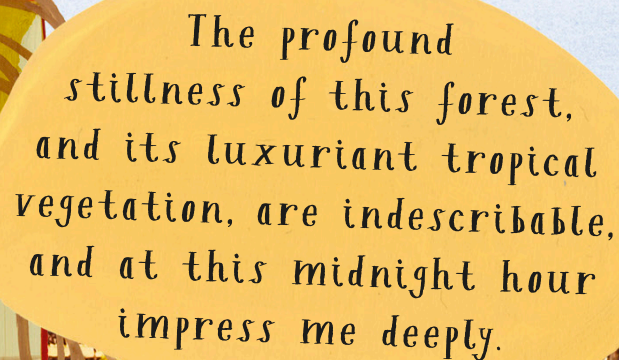 The profound
stillness of this forest,
and its luxuriant tropical
vegetation, are indescribable,
and at this midnight hour
impress me deeply.